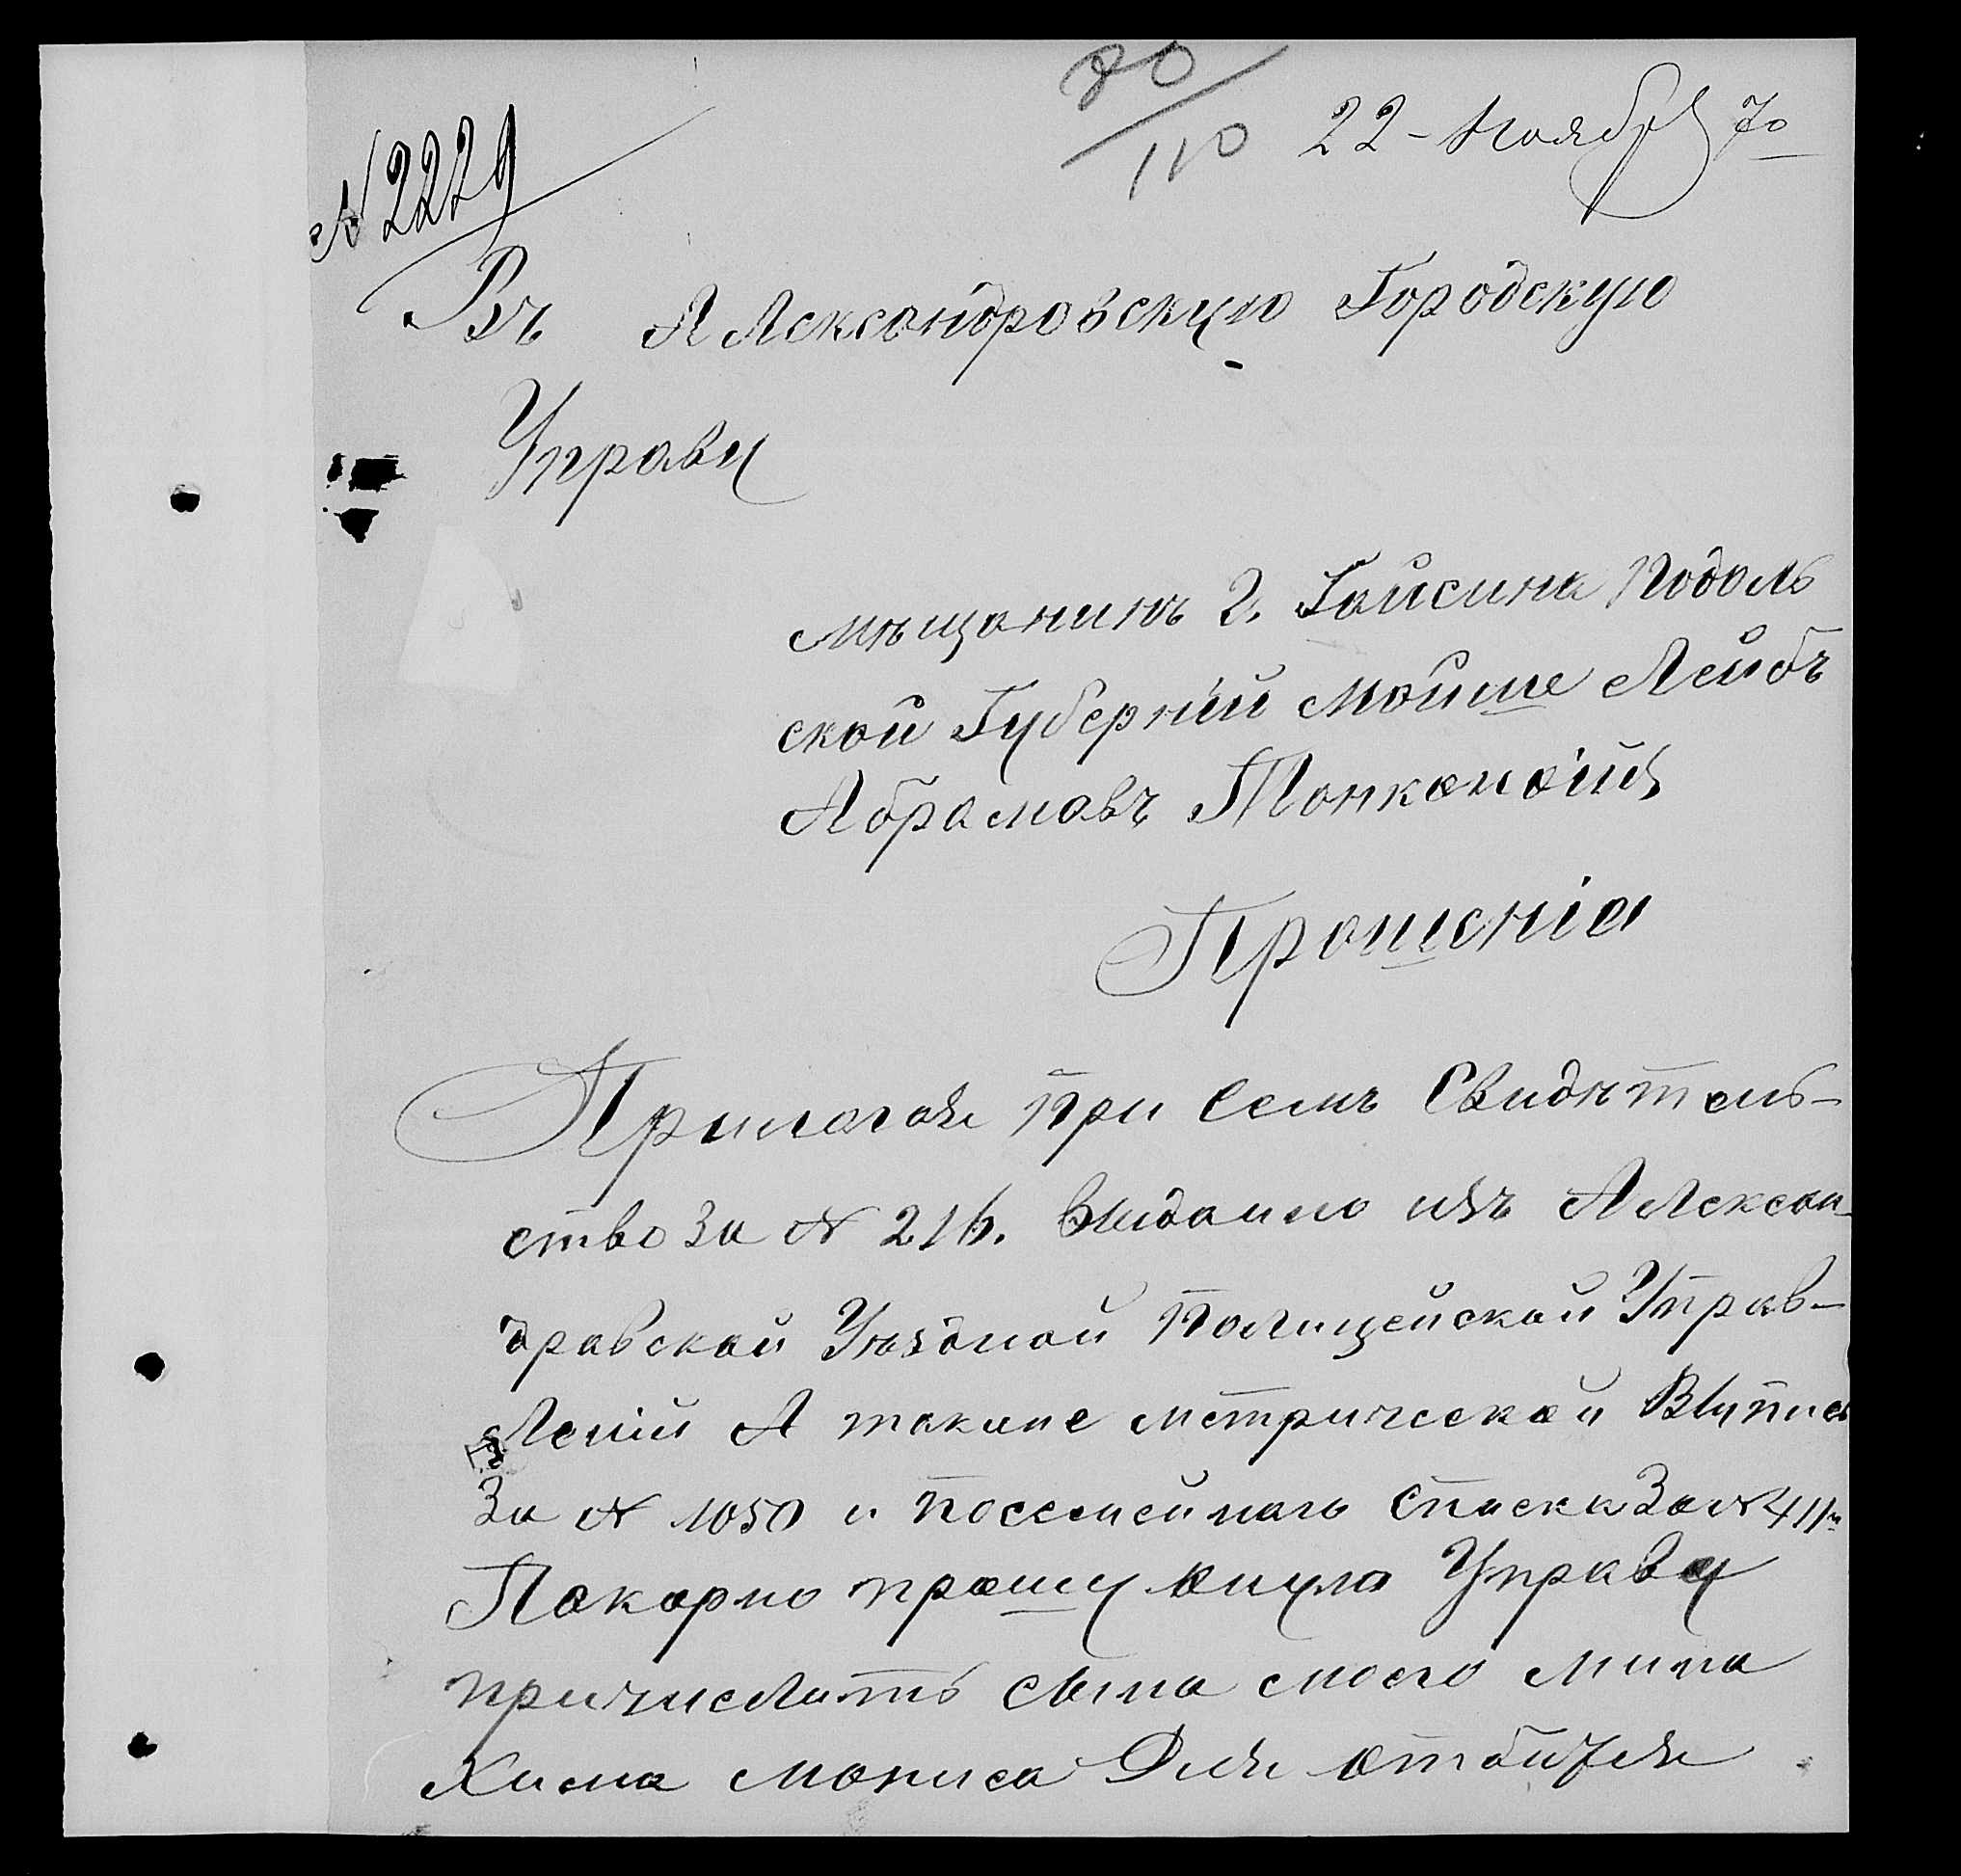 80/110
22 - Ноября 70
№ 2229
Въ Александровскую Городскую
Управу
мѣщанинъ г. Гайсина Подоль
ской Губерніи Мойше Лейбъ
Абрамовъ
Прошенія
Прилогая при семъ Свидѣтель-
ство за № 216. выдано изъ Алексан-
дравской Уѣздной Полицейской Управ-
леніи А такие метрической Выпись
За № 1050 и посемейнаго списка За № 411
Покорно прошу оную Управу
причислить сына моего
Хима Мониса Для